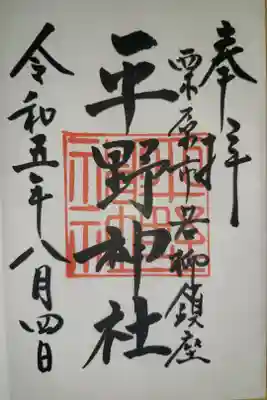 奉拝
栗原市若柳鎮座
平野神社
令和五年八月四日